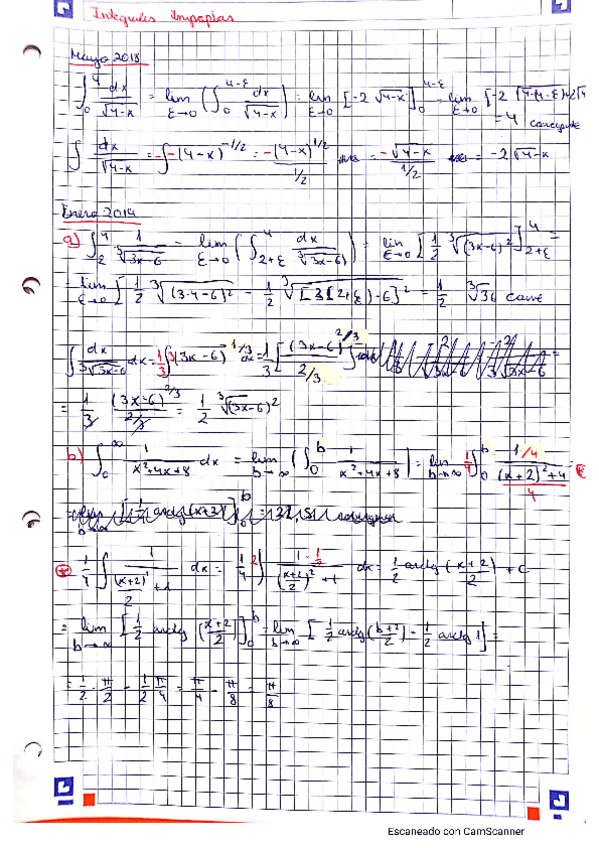 Integrales Impropias
Mayo 2018
∫₀⁴ dx/√(4-x) = lim ε→0 (∫₀^(4-ε) dx/√(4-x)) = lim ε→0 [-2 √(4-x)]₀^(4-ε) = lim ε→0 [-2 √(4-(4-ε))+2√4
= 4 converge
∫ dx/√(4-x) = -∫-(4-x)^(-1/2) = -(4-x)^(1/2)/(1/2) = -√(4-x)/(1/2) = -2√(4-x)
Enero 2014
a) ∫₂⁴ 1/∛(3x-6) = lim ε→0 (∫_(2+ε)^4 dx/∛(3x-6)) = lim ε→0 [1/2 ∛((3x-6)²)]_(2+ε)^4 =
= lim ε→0 [1/2 ∛((3·4-6)²) - 1/2 ∛([3(2+ε)-6]²) = 1/2 ∛36 conve
∫ dx/∛(3x-6) dx = 1/3 ∫3(3x-6)^(1/3) dx = 1/3 [(3x-6)^(2/3)/(2/3)] =
= 1/3 (3x-6)^(2/3)/(2/3) = 1/2 ∛(3x-6)²
b) ∫₀^∞ 1/(x²+4x+8) dx = lim b→∞ (∫₀^b 1/(x²+4x+8)) = lim b→∞ 1/4 ∫₀^b (1/4)/(((x+2)²+4)/4) =
1/4 ∫ 1/((x+2)²/2 +1) dx = 1/4 2∫ 1·1/2/(((x+2)/2)²+1) dx = 1/2 arctg (x+2)/2) + C
= lim b→∞ [1/2 arctg (x+2/2)]₀^b = lim b→∞ [1/2 arctg(b+2/2) - 1/2 arctg 1] =
= 1/2 · π/2 - 1/2 π/4 = π/4 - π/8 = π/8
Escaneado con CamScanner